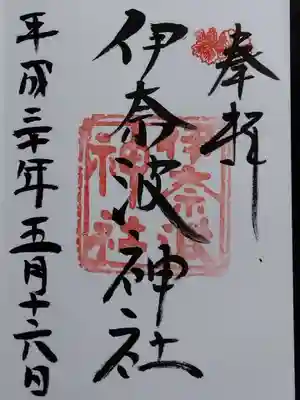 奉拝
伊奈波神社
伊奈波
神社
平成三十年五月十六日